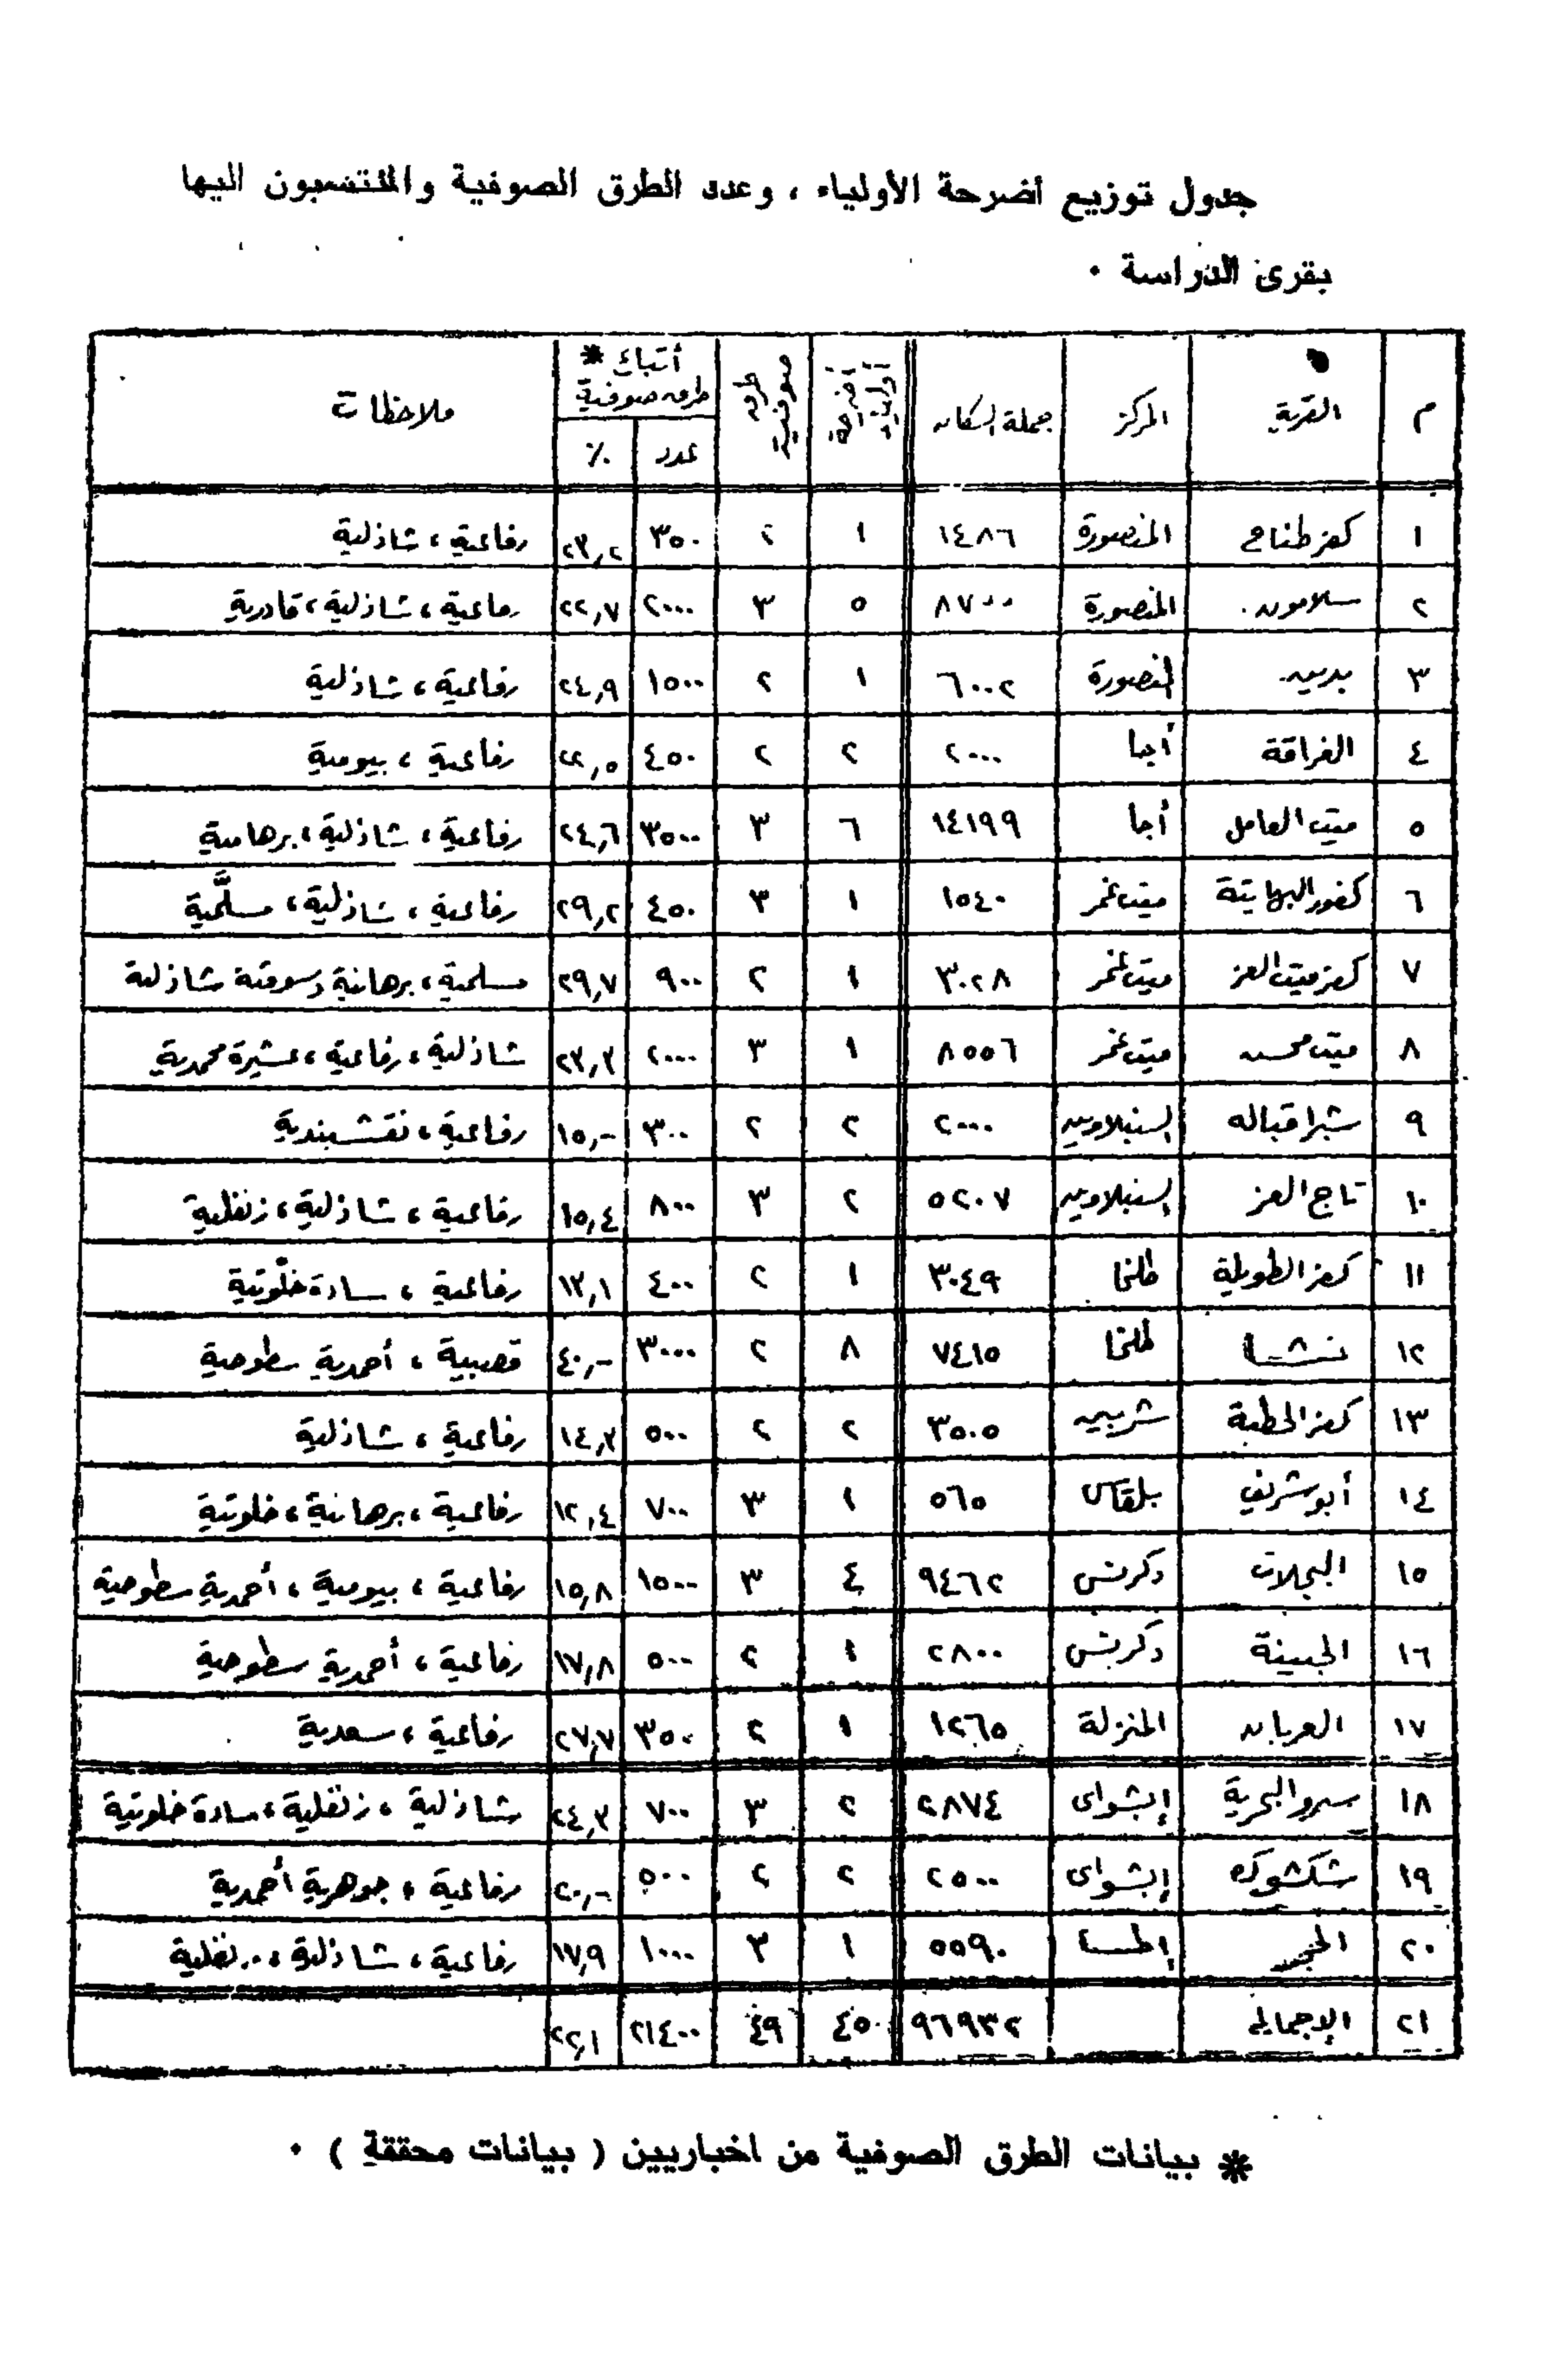 جدول توزيع أضرحة الأولياء ، وعدد الطرق الصوفية والمنتسبون اليها
بقرى الدراسة ٠
م | القرية | المركز | جملة السكان | أضرحة أولياء | طرق صوفية | أتباع * طرق صوفية عدد | ٪ | ملاحظات
١ | كفر طناح | المنصورة | ١٤٨٦ | ١ | ٢ | ٣٥٠ | ٢٣,٢ | رفاعية ، شاذلية
٢ | سلامون | المنصورة | ٨٧٠٠ | ٥ | ٣ | ٢٠٠٠ | ٢٢,٧ | رفاعية ، شاذلية ، قادرية
٣ | بدين | المنصورة | ٦٠٠٢ | ١ | ٢ | ١٥٠٠ | ٢٤,٩ | رفاعية ، شاذلية
٤ | الغراقة | أجا | ٢٠٠٠ | ٢ | ٢ | ٤٥٠ | ٢٢,٥ | رفاعية ، بيومية
٥ | ميت العامل | أجا | ١٤١٩٩ | ٦ | ٣ | ٣٥٠٠ | ٢٤,٦ | رفاعية ، شاذلية ، برهامية
٦ | كفور البهايتة | ميت غمر | ١٥٤٠ | ١ | ٣ | ٤٥٠ | ٢٩,٢ | رفاعية ، شاذلية ، مسلَّمية
٧ | كفر ميت العز | ميت غمر | ٣٠٢٨ | ١ | ٢ | ٩٠٠ | ٢٩,٧ | مسلمية ، برهانية دسوقية شاذلية
٨ | ميت محسن | ميت غمر | ٨٥٥٦ | ١ | ٣ | ٢٠٠٠ | ٢٣,٣ | شاذلية ، رفاعية ، عشيرة محمدية
٩ | شبرا قباله | السنبلاوين | ٢٠٠٠ | ٢ | ٢ | ٣٠٠ | ١٥,- | رفاعية ، نقشبندية
١٠ | تاج العز | السنبلاوين | ٥٢٠٧ | ٢ | ٣ | ٨٠٠ | ١٥,٤ | رفاعية ، شاذلية ، زنفلية
١١ | كفر الطويلة | طلخا | ٣٠٤٩ | ١ | ٢ | ٤٠٠ | ١٣,١ | رفاعية ، سادة خلّوتية
١٢ | نشا | طلخا | ٧٤١٥ | ٨ | ٢ | ٣٠٠٠ | ٤٠,- | قصبية ، أحمدية سطوحية
١٣ | كفر الحطبة | شربين | ٣٥٠٥ | ٢ | ٢ | ٥٠٠ | ١٤,٣ | رفاعية ، شاذلية
١٤ | أبو شريف | بلقاس | ٥٦٥ | ١ | ٣ | ٧٠٠ | ١٢,٤ | رفاعية ، برهانية ، خلوتية
١٥ | البجلات | دكرنس | ٩٤٦٢ | ٤ | ٣ | ١٥٠٠ | ١٥,٨ | رفاعية ، بيومية ، أحمدية سطوحية
١٦ | الجنينة | دكرنس | ٢٨٠٠ | ١ | ٢ | ٥٠٠ | ١٧,٨ | رفاعية ، أحمدية سطوحية
١٧ | العربان | المنزلة | ١٢٦٥ | ١ | ٢ | ٣٥٠ | ٢٧,٧ | رفاعية ، سعدية
١٨ | سرو البحرية | إبشواى | ٢٨٧٤ | ٢ | ٣ | ٧٠٠ | ٢٤,٣ | شاذلية ، زنفلية ، سادة خلوتية
١٩ | شكشوك | إبشواى | ٢٥٠٠ | ٢ | ٢ | ٥٠٠ | ٢٠,- | رفاعية ، جوهرية أحمدية
٢٠ | إطسا | ٥٥٩٠ | ١ | ٣ | ١٠٠٠ | ١٧,٩ | رفاعية ، شاذلية ، زنفلية
٢١ | الإجمالى | ٩٦٩٣٢ | ٤٥ | ٤٩ | ٢١٤٠٠ | ٢٢,١
* بيانات الطرق الصوفية من اخباريين ( بيانات محققة ) ٠